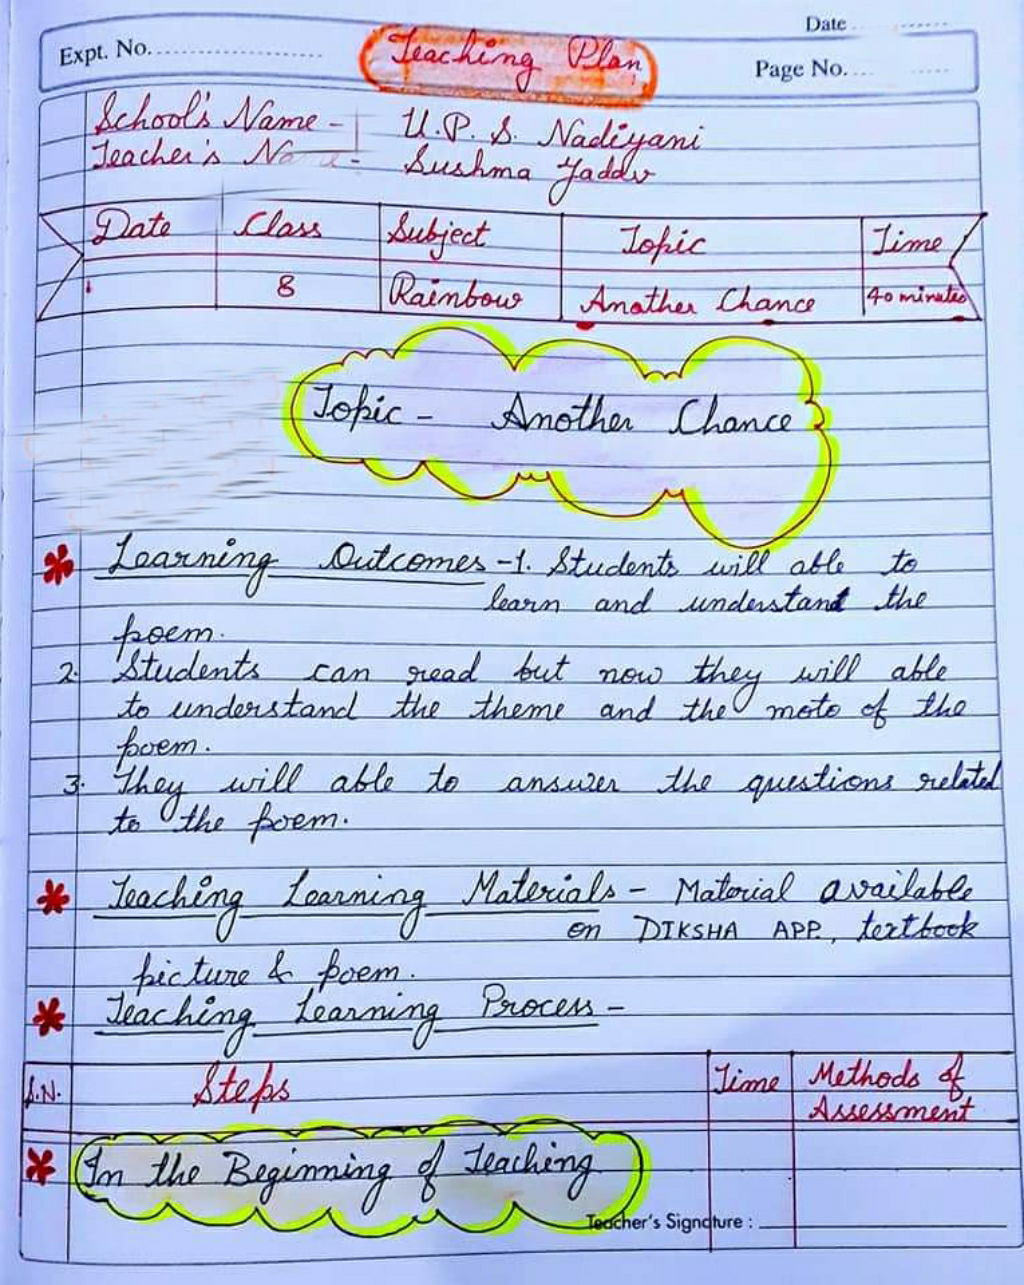 Date
Expt. No.
Teaching Plan
Page No.
School's Name - U.P.S. Nadiyani
Teacher's Name - Sushma Yadav
Date Class Subject Topic Time
8 Rainbow Another Chance 40 minutes
Topic - Another Chance
Learning Outcomes - 1. Students will able to
learn and understant the
poem.
2. Students can read but now they will able
to understand the theme and the moto of the
poem.
3. They will able to answer the questions related
to the poem.
Teaching Learning Materials - Material available
on DIKSHA APP., textbook
picture & poem.
Teaching Learning Process -
S.N. Steps Time Methods of
Assessment
In the Beginning of Teaching
Teacher's Signature :